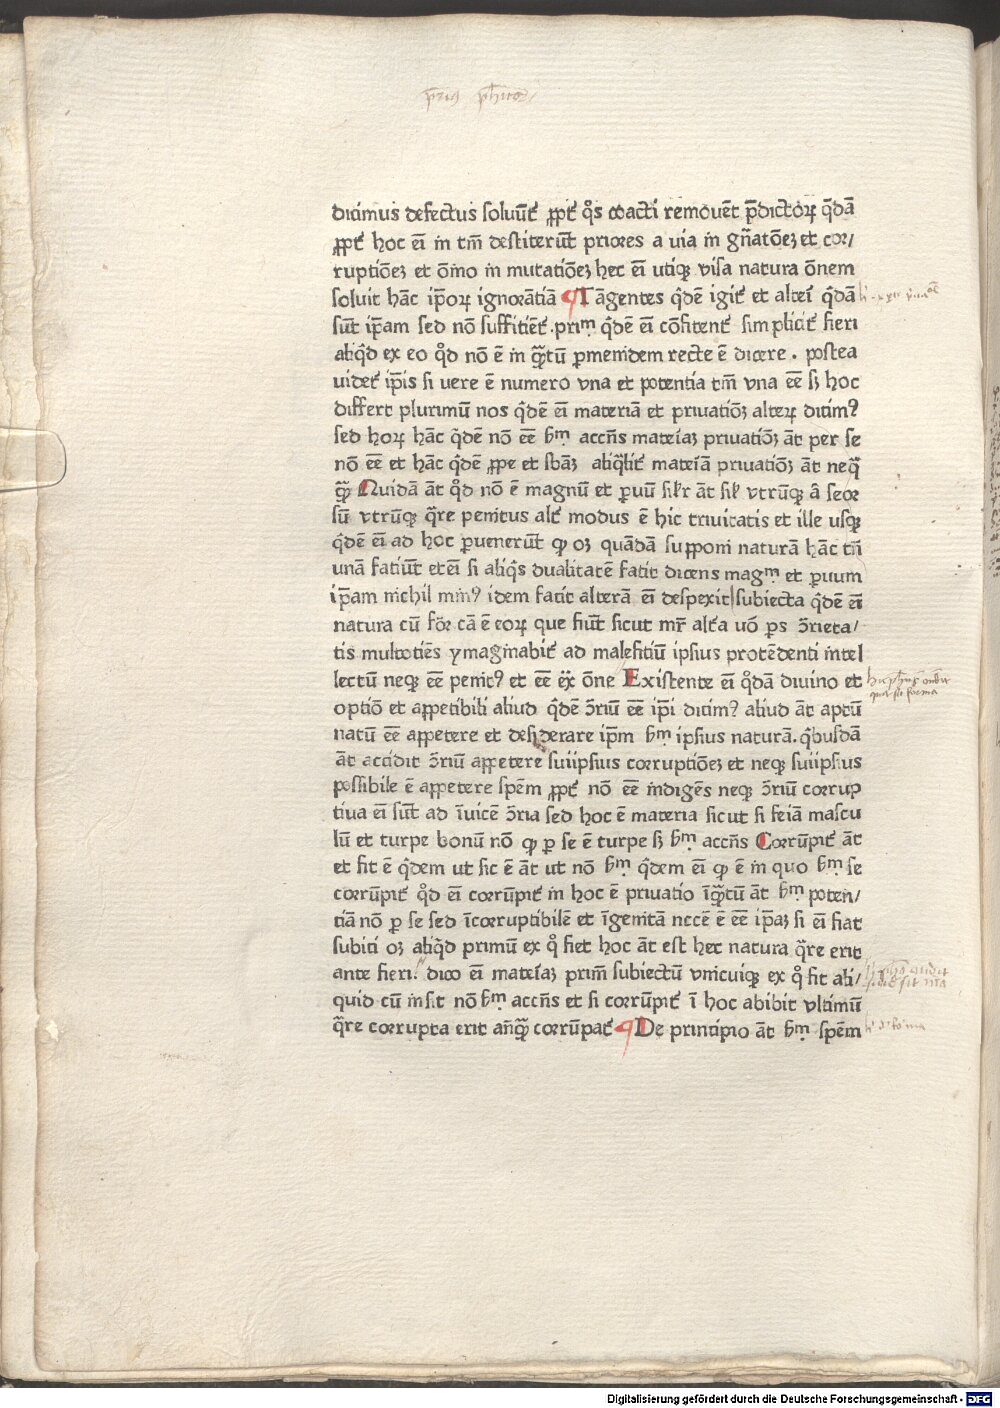 dicimus defectus soluūt᷑ ꝓpt᷑ qͦs coacti remouēt p̄dictoꝝ qͥdā
ꝓpt᷑ hoc eī in tm̄ destiterūt priores a uia in gn̄atōeꝫ et cor/
ruptiōeꝫ et ōīno in mutatiōeꝫ hec eī utiqꝫ visa natura ōnem
soluit hāc ip̄oꝝ ignorātiā ¶ Tāgentes qͥdē igit᷑ et alteī qͥdā
sūt ip̄am sed nō suffitiēt᷑. primͫ qͥdē eī cōfitent᷑ simplicit᷑ fieri
aliqͥd ex eo qͦd nō ē in qᷓtū ꝑmenidem recte ē dicere . postea
uidet᷑ ip̄is si vere ē numero vna et potentia tm̄ vna eē sꝫ hoc
differt plurimū nos qͥdē eī materiā et priuatiōꝫ alteꝝ dicimꝰ
sed hoꝝ hāc qͥdē nō eē ẜm accn̄s mateīaꝫ priuatiōꝫ āt per se
nō eē et hāc qͥdē ꝓpe et sbāꝫ aliqͣlit᷑ mateīā priuatiōꝫ āt neqͣꝫ
qᷓꝫ Quidā āt qͦd nō ē magnū et ꝑuū silr āt sil vtrūqꝫ aͭ seor
sū vtrūqꝫ qͣre penitus alt᷑ modus ē hic triuitatis et ille usqꝫ
qͥdē eī ad hoc ꝑuenerūt ꝙ oꝫ quādā supponi naturā hāc tn̄
unā fatiūt etēi si aliqͥs dualitatē fatit dicens magͫ et ꝑuum
ip̄am nichil minꝰ idem fatit alterā eī despexit subiecta qͥdē eī
natura cū for cā ē eoꝝ que fiūt sicut mr̄ alt᷑a uͦo ꝑs ↄ̄rieta/
tis multotiēs ymaginabit᷑ ad malefitiū ipsius protēdenti intel
lectū neqꝫ eē penitꝰ et eē eẍ ōne Existente eī qͦdā diuino et
optiō et appetibili aliud qͥdē ↄ̄riū eē ip̄i dicimꝰ aliud āt aptū
natū eē appetere et desiderare ip̄m ẜm ipsius naturā. qͥbusdā
āt accidit ↄ̄riū appetere suiipsius corruptiōeꝫ et neqꝫ suiipsius
possibile ē appetere spēm ꝓpt᷑ nō eē indigēs neqꝫ ↄ̄riū corrup
tiua eī sūt ad īuicē ↄ̄ria sed hoc ē materia sicut si feīā mascu
lū et turpe bonū nō ꝙ ꝑ se ē turpe sꝫ ẜm accn̄s Corrūpit᷑ āt
et fit ē qͥdem ut sic ē āt ut nō ẜm qͥdem eī ꝙ ē in quo ẜm se
corrūpit᷑ qͦd eī corrūpit᷑ in hoc ē priuatio īqᷓtū āt ẜm poten/
tiā nō ꝑ se sed īcorruptibilē et īgenitā necē ē eē ip̄aꝫ si eī fiat
subici oꝫ aliqͥd primū ex qͦ fiet hoc āt est hec natura qͣre erit
ante fieri. dico eī mateīaꝫ prim̄ subiectū vnicuiqꝫ ex qͦ fit ali/
quid cū insit nō ẜm accn̄s et si corrūpit᷑ ī hoc abibit vltimū
qͣre corrupta erit an̄qᷓ corrūpat᷑ ¶ De principio āt ẜm spēm
Digitalisierung gefördert durch die Deutsche Forschungsgemeinschaft - DFG